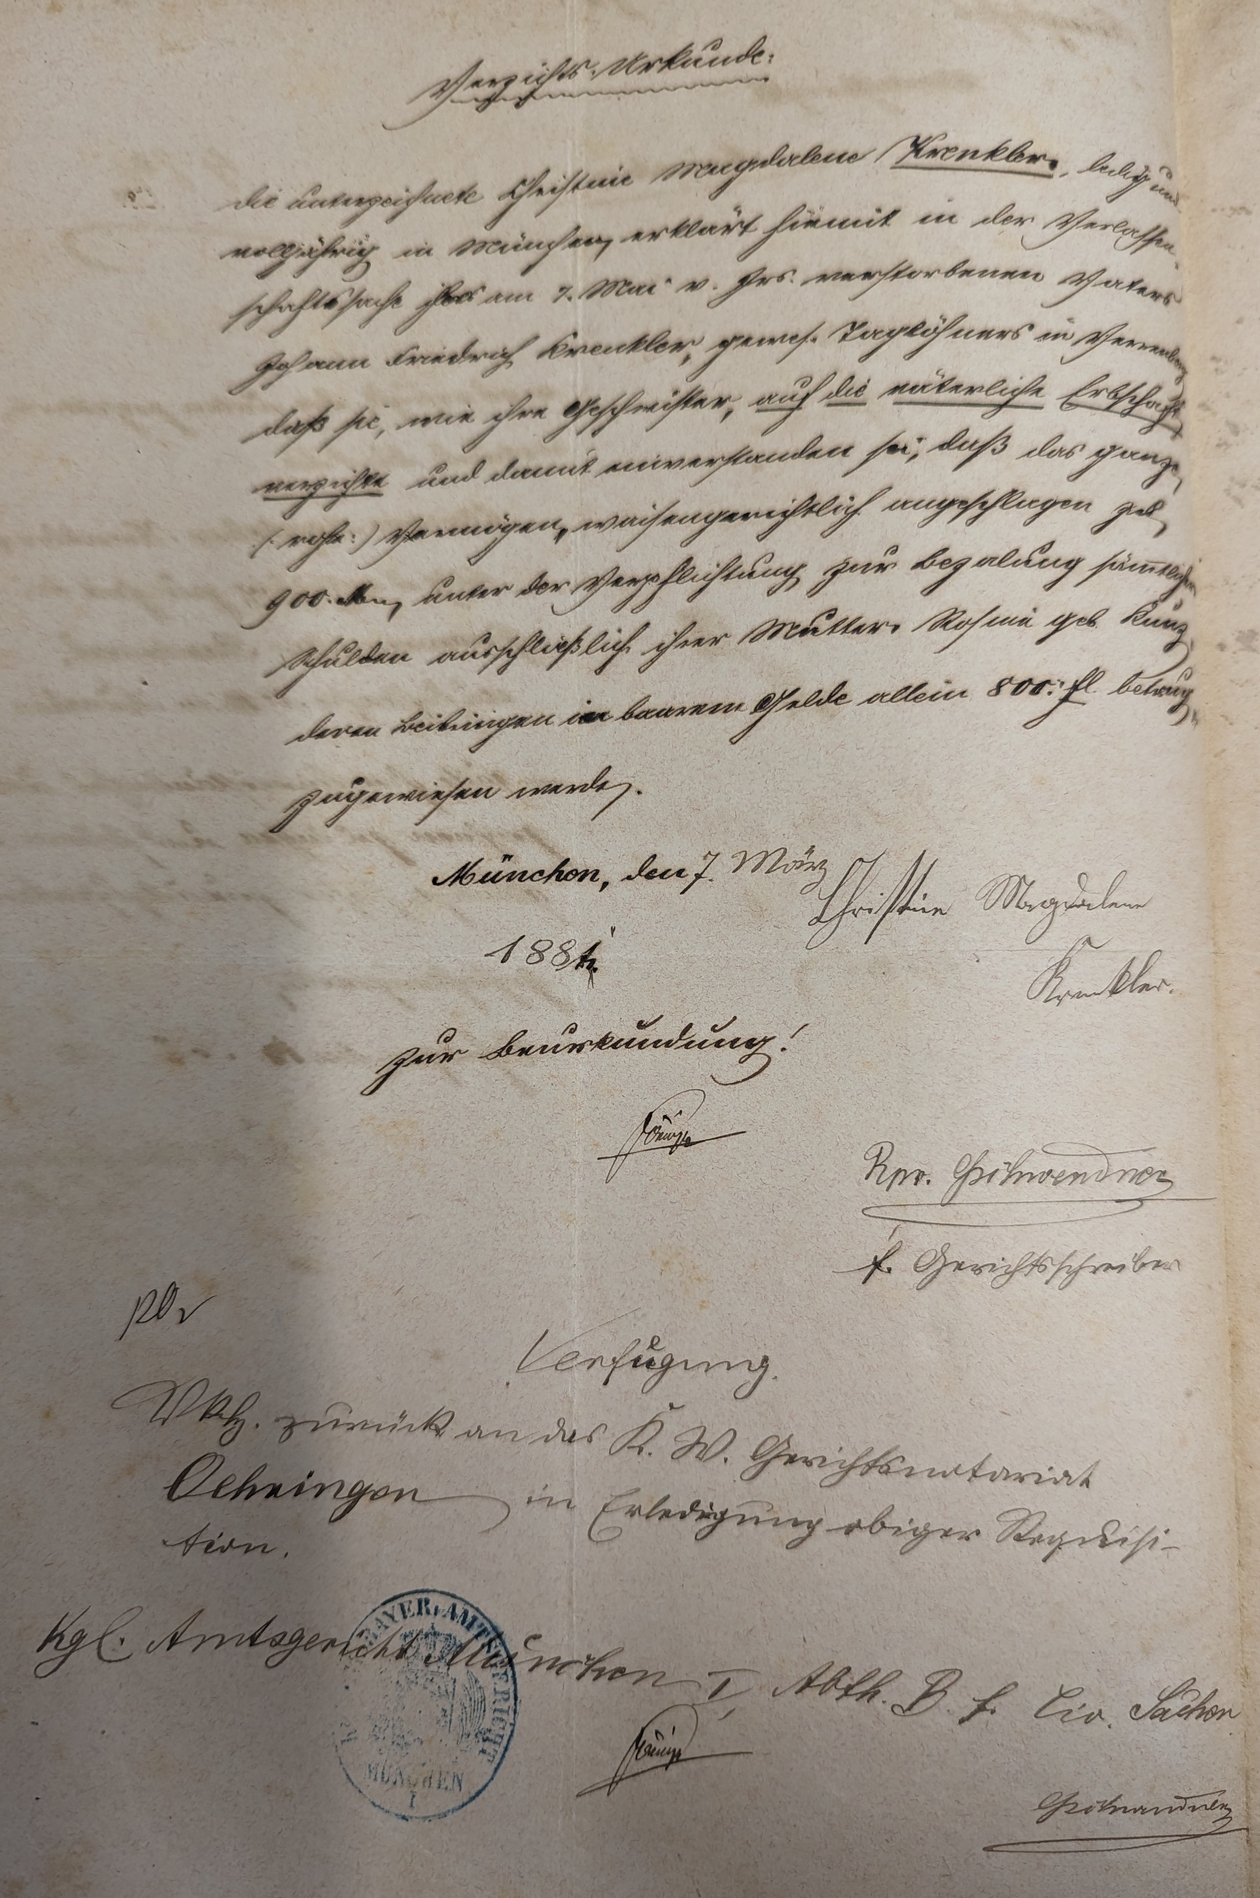 Verzichts-Urkunde.
die unterzeichnete Christine Magdalene Krenkler, ledig und
volljährig in München, erklärt hiemit in der Verlassen-
schaftssache ihres am 7. Mai v. Jrs. verstorbenen Vaters
Johann Friedrich Krenkler, gewes. Taglöhners in Verrenberg
daß sie, wie ihre Geschwister, auf die väterliche Erbschaft
verzichte und damit einverstanden sei, daß das ganze
(: rohe :) Vermögen, waisengerichtlich angeschlagen zu
900. M., unter der Verpflichtung zur Bezalung sämtlicher
Schulden ausschließlich ihrer Mutter Rosine geb. Kunz
deren Beibringen in baarem Gelde allein 800. fl. betrug,
zugewiesen werde.
München, den 7. März
Christine Magdalene
1881.
Krenkler.
zur Beurkundung!
f. Gerichtsschreiber
Verfügung.
zurück an das K. W. Gerichtsnotariat
Oehringen in Erledigung obiger Requisi-
tion.
Kgl. Amtsgericht München I Abth. B f. Civ. Sachen
BAYER. AMTSGERICHT
MÜNCHEN
I